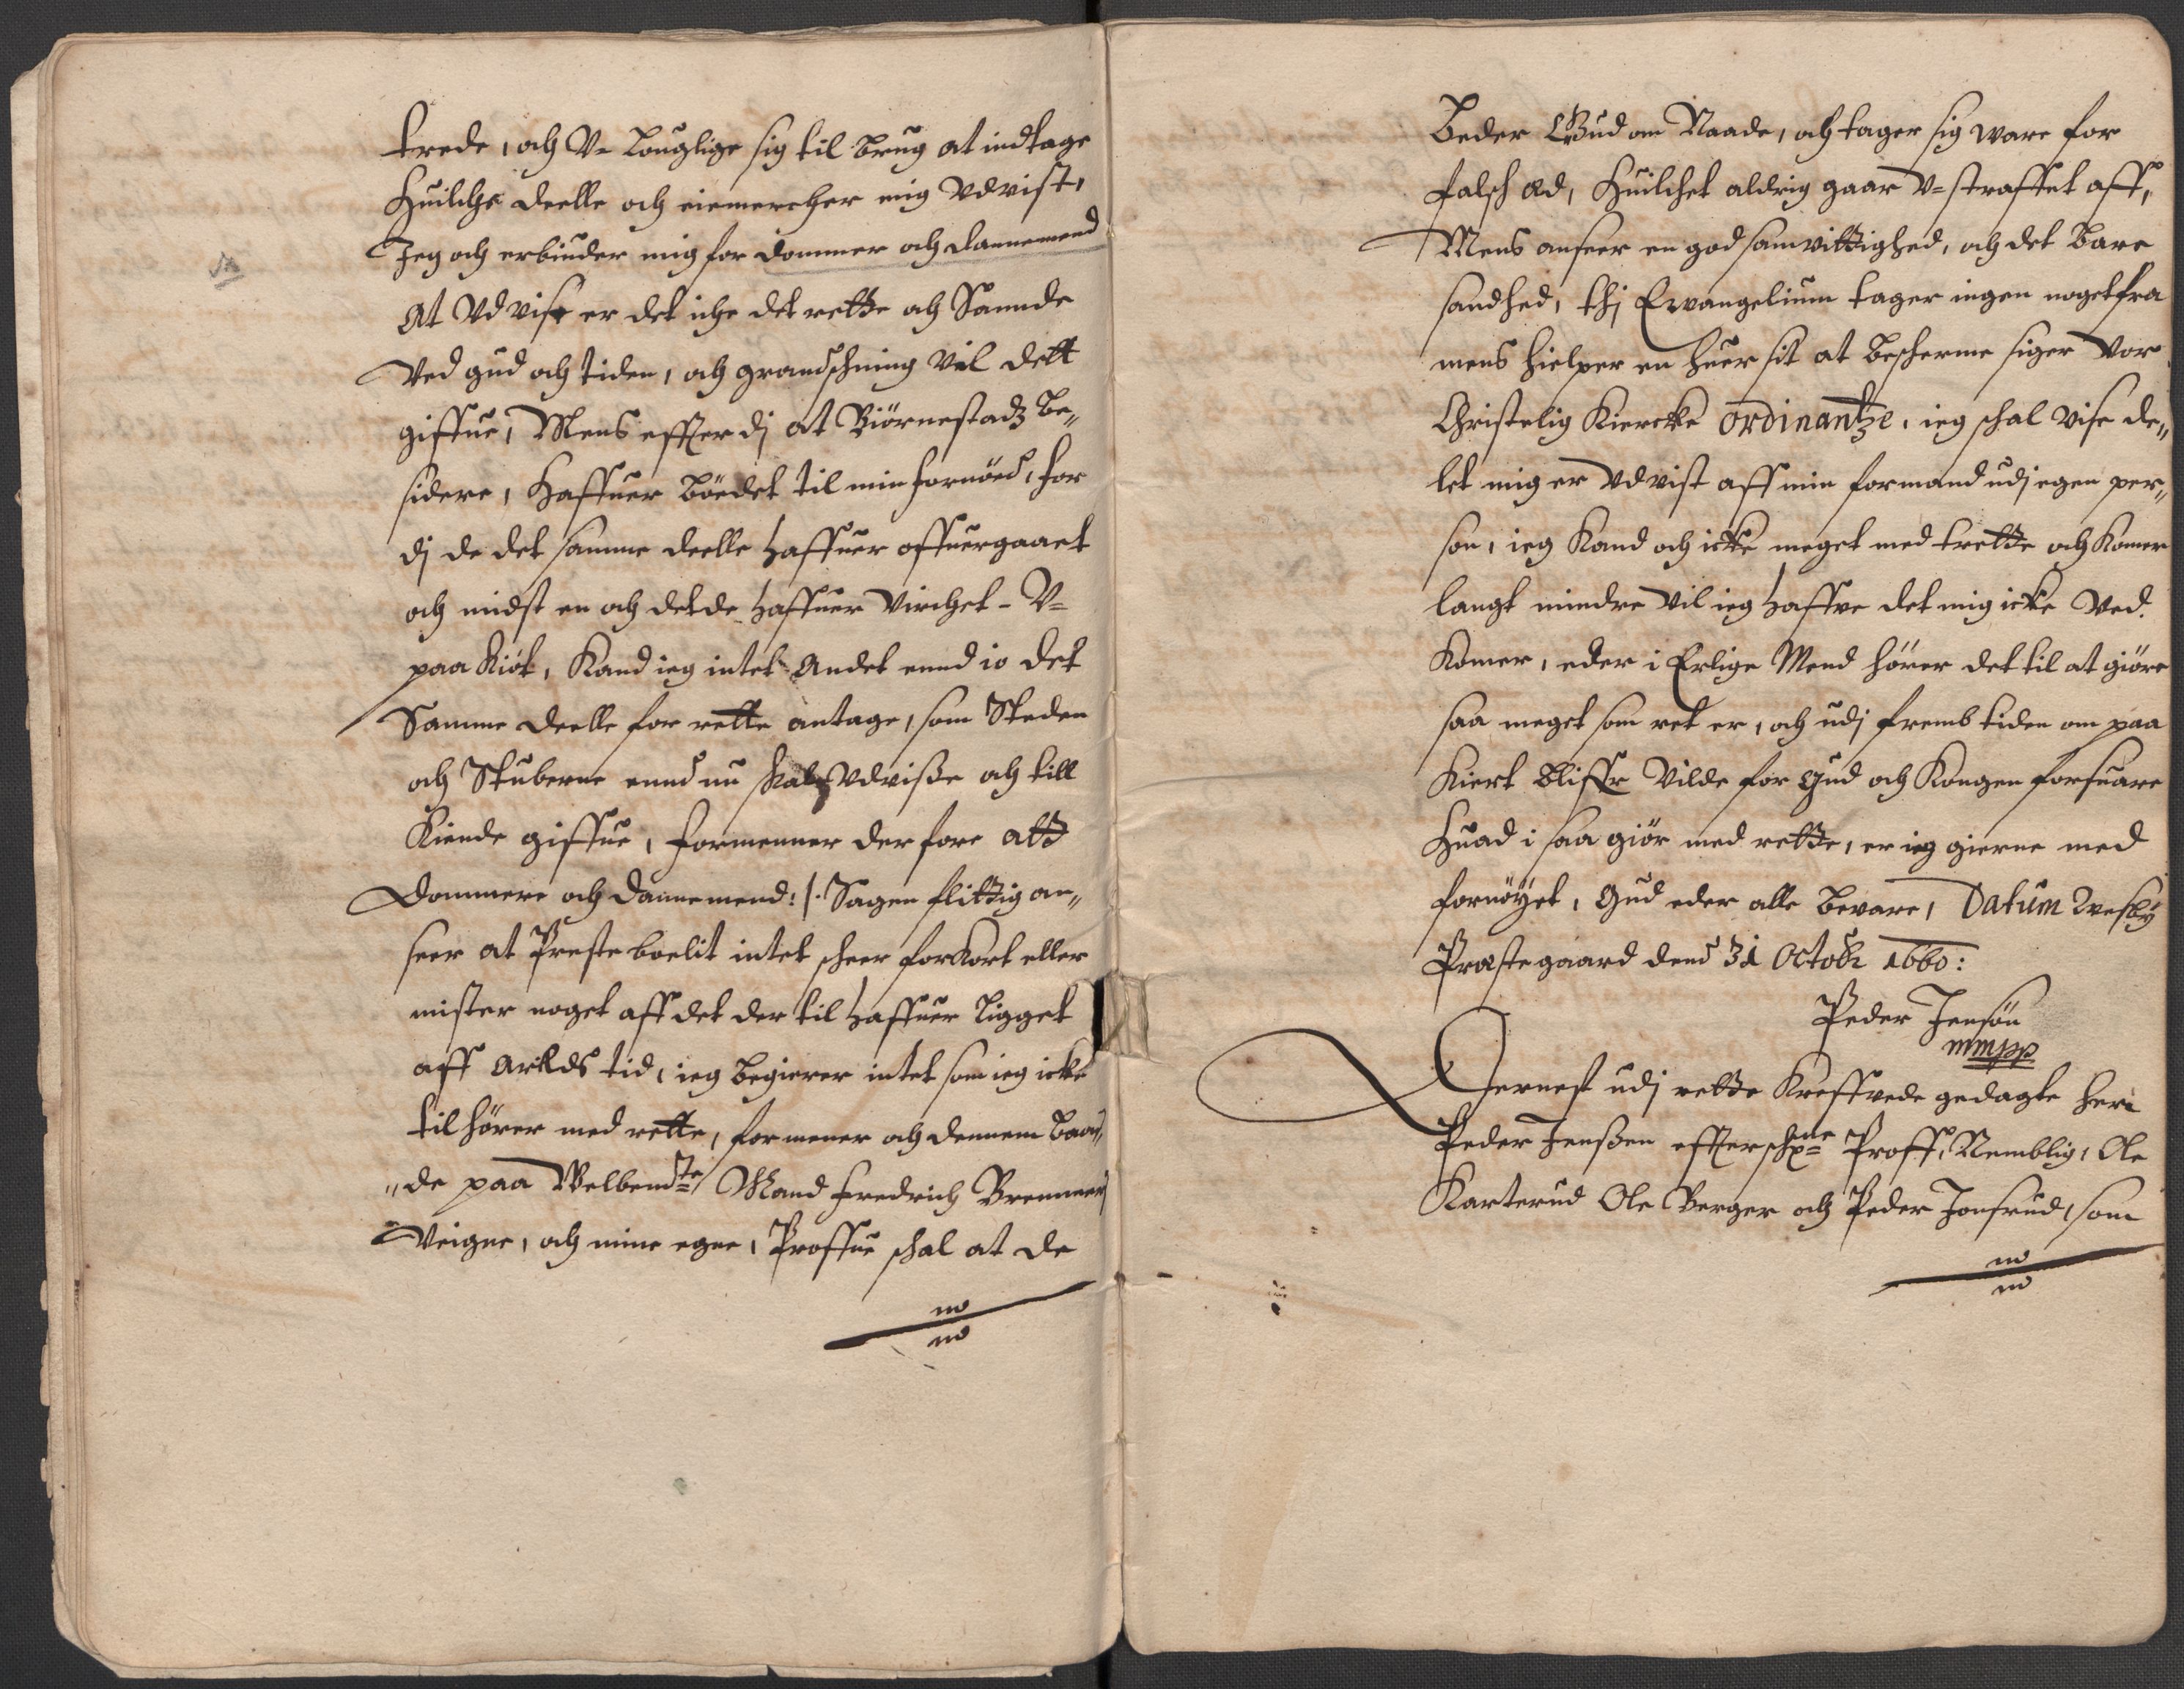 trede, och V= Louglige sig til brug at indtage
Huilche deelle och eiemercher mig Udvist,
Jeg och erbiuder mig for dommer och dannemend
At Udvise er det iche det rette och Sannde
Ved gud och tiden, och grandschning vil dett
giffue, Mens effterdj at Biörnestadz be„
sidere, Haffuer böedet til min fornöed, for
dj de det samme deelle haffuer offuergaaet
och midst en och det de haffuer Virchet - V=
paa kiöt, Kand ieg intet Andet ennd io det
Samme deelle for rette antage, som Steden
och Stuberne ennd nu skal Udvisse och till
Kiende giffue, formenner der fore att
Dommere och dannemend: /. Sagen flittig an„
seer at Preste boelit intet scheer forkort eller
mister noget aff det der til haffuer ligget
aff Arilds tid, ieg begierer intet som ieg icke
tilhörer med rette, formener och dennem baa„
„de paa Velbend^te Mand Fredrich Brenners
Veigne, och mine egne, Proffue schal at de
Beder Gud om Naade, och tager sig ware for
falsch æd, Huilchet aldrig gaar V=straffet aff,
Mens anseer en god samvittighed, och det bare
sandhed, thj Evangelium tager ingen noget fra
mens hielper en huer sit at bescherme siger Vor
Christelig Kiercke ordinantze, ieg schal vise de„
let mig er Udvist aff min formand udj egen per„
son, ieg Kand och icke meget med trette och Komer
langt mindre Vil ieg haffve det mig icke Ved.
Komer, eder i Erlige Mend hörer det til at giöre
saa meget som ret er, och udj fremb tiden om paa
Kiert bliffr Vilde for Gud och Kongen forsuare
Huad i saa giör med rette, er ieg gierne med
fornöyet, Gud eder alle bevare, Datum Vesby
Præstegaard dend 31 Octobr 1660:
Peder Jensön
mmpp
Dernest udj rette Kreffvede gedagte her
Peder Jenssen effterschr^ne Proff, Nemblig, Ole
Karterud Ole Berger och Peder Jonsrud, som